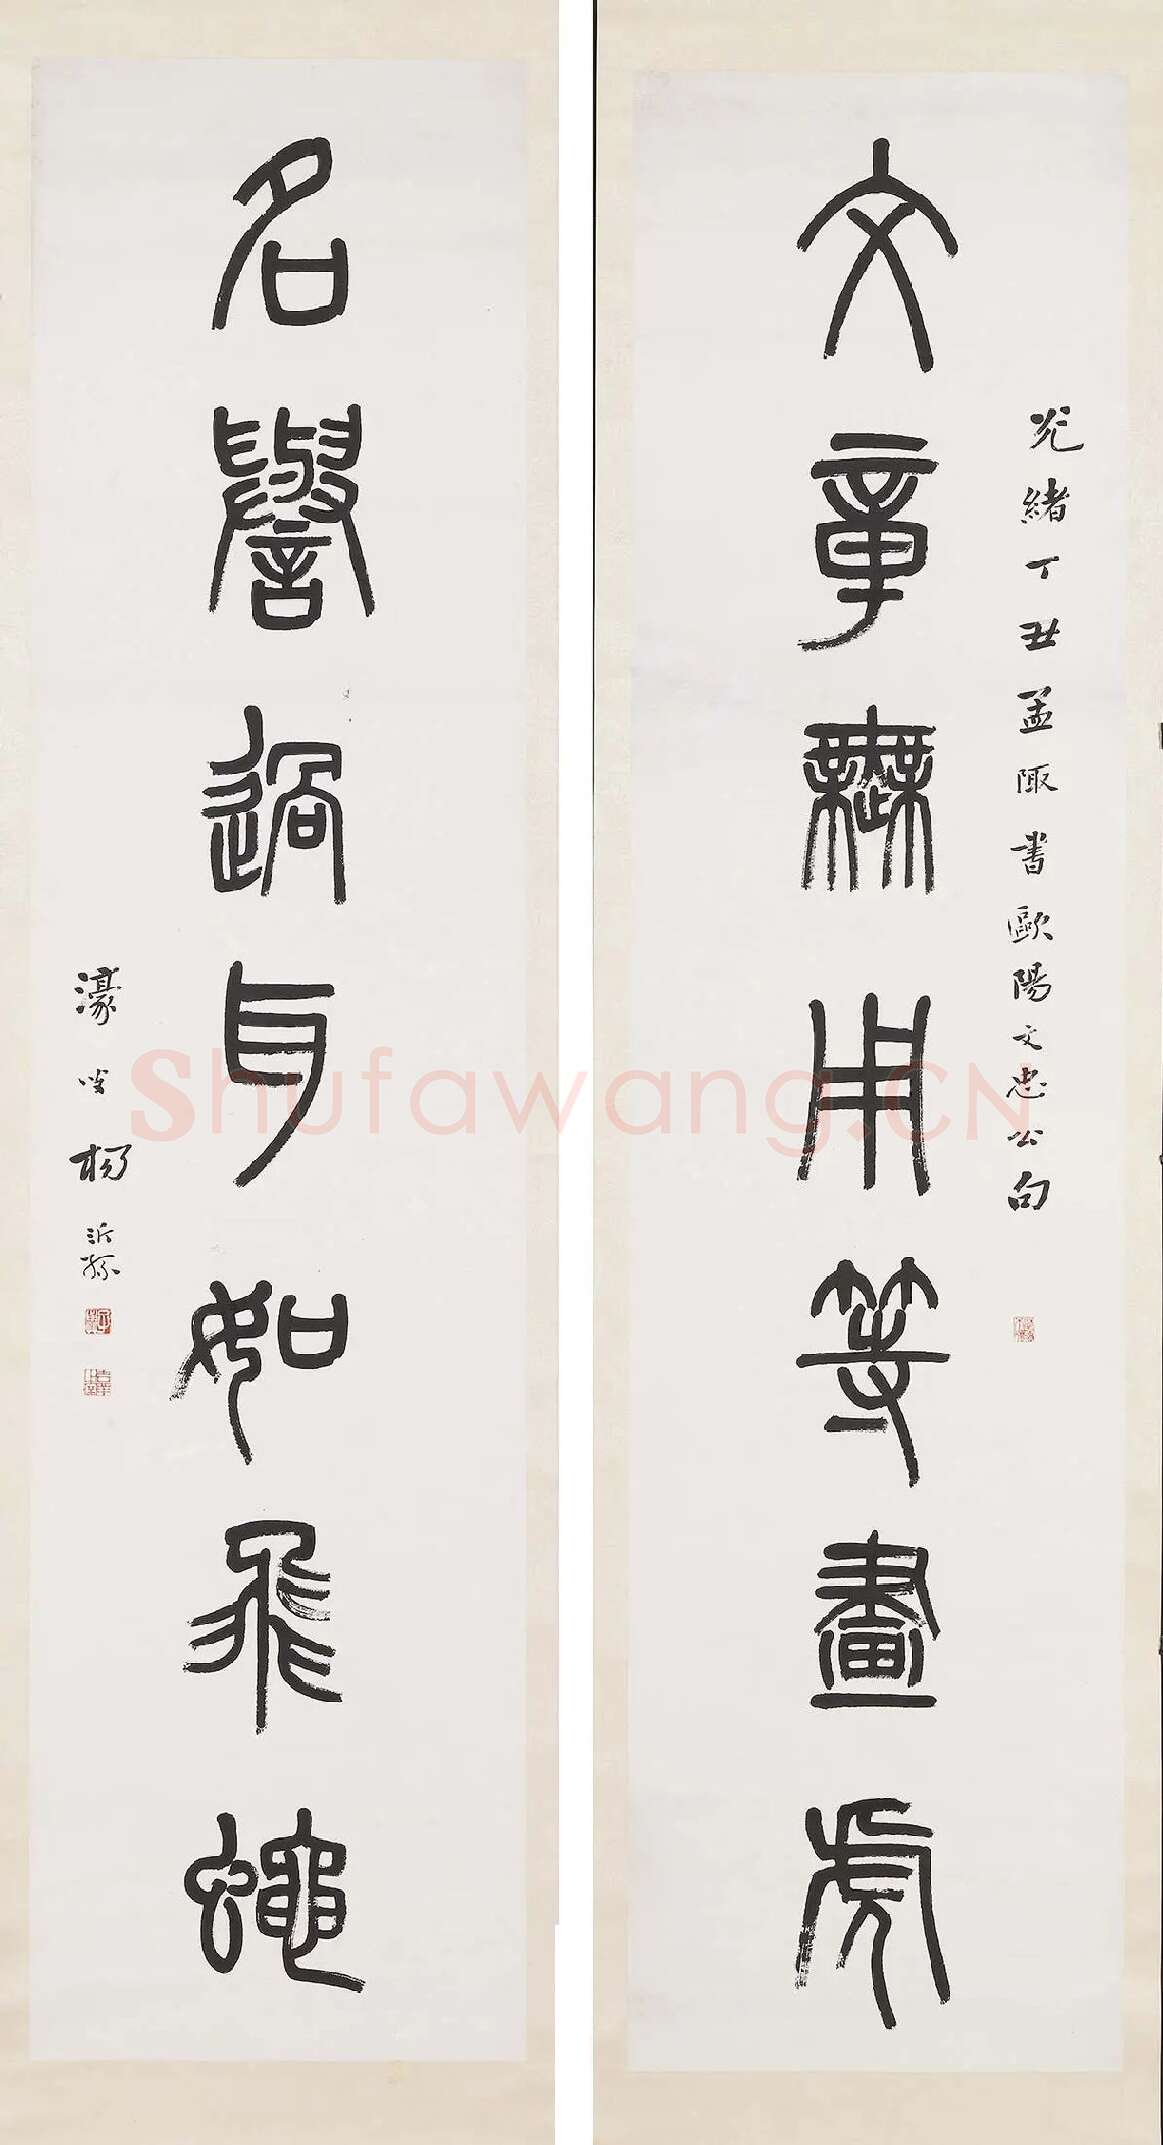 文章無用等畫虎
光緒丁丑孟陬書歐陽文忠公句
名譽過耳如飛蠅
濠叟楊沂孫
Shufawang.CN